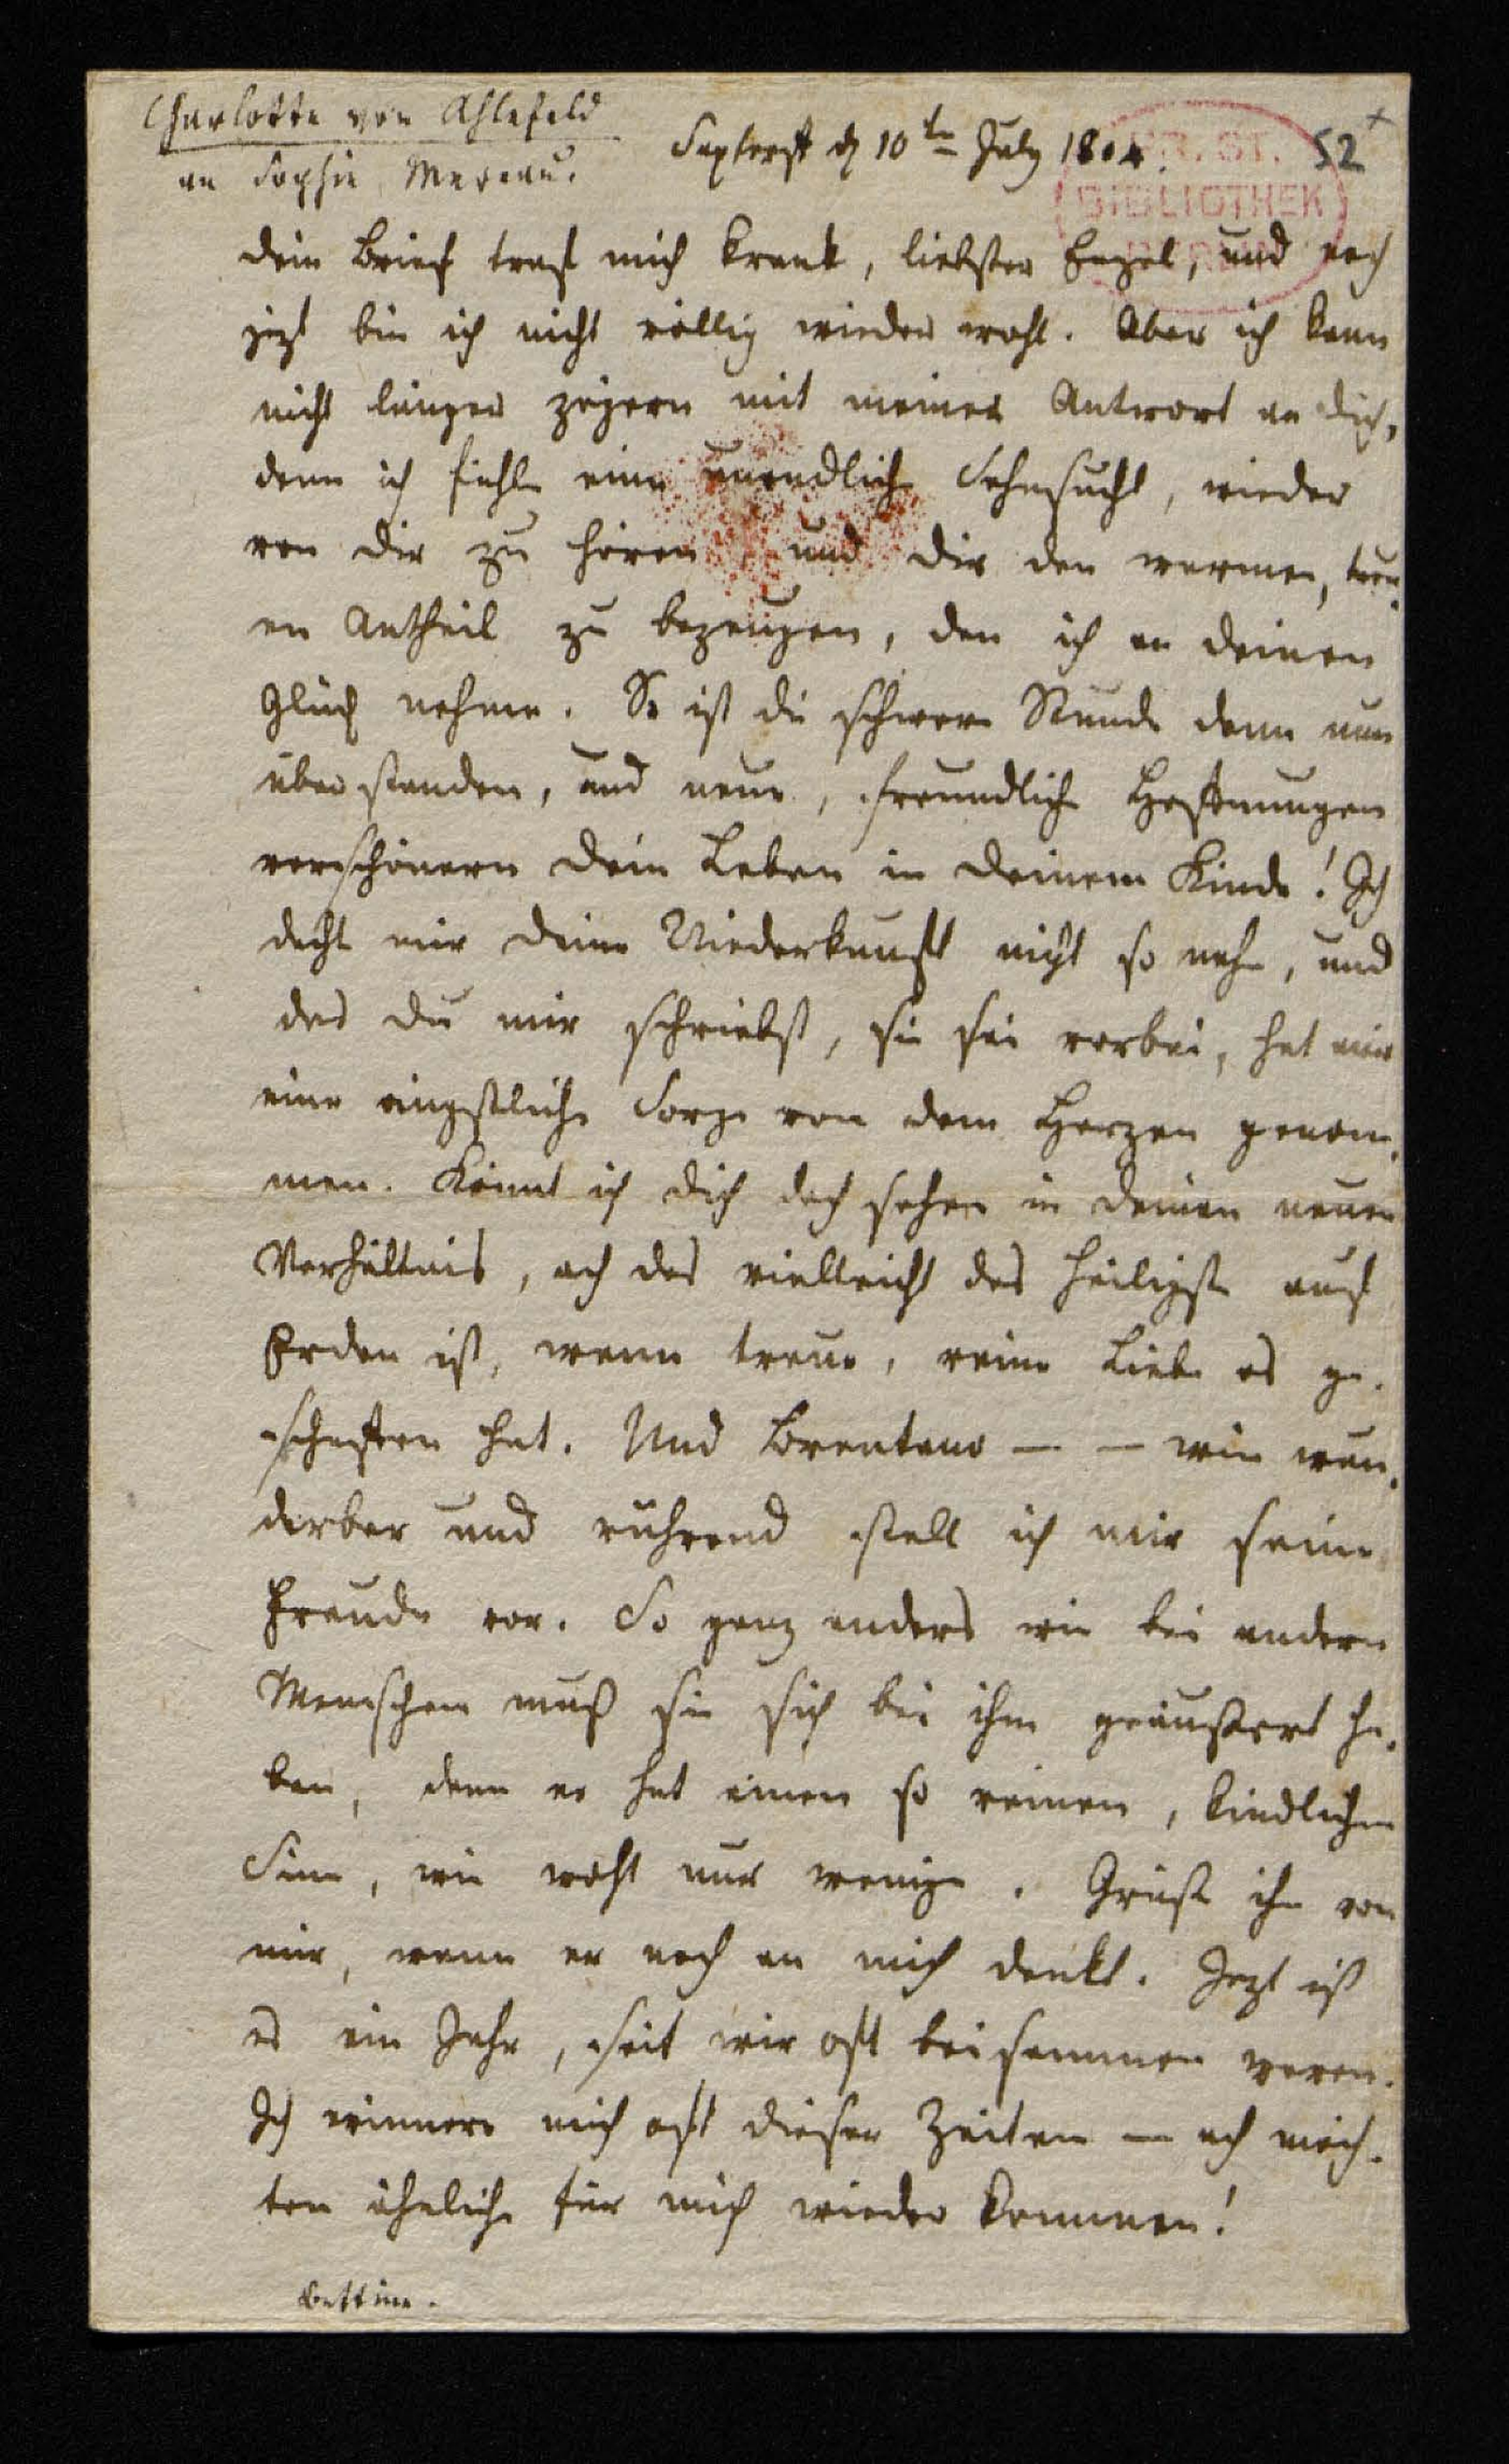 Charlotte von Ahlefeld
an Sophie Mereau.
Saxtorff d 10ten July 1804.
52
PR. ST.
BIBLIOTHEK
BERLIN
Dein Brief traf mich krank, liebster Engel, und noch
jezt bin ich nicht völlig wieder wohl. Aber ich kann
nicht länger zögern mit meiner Antwort an dich,
denn ich fühle eine unendliche Sehnsucht, wieder
von dir zu hören, und dir den warmen, treu-
en Antheil zu bezeugen, den ich an deinen
Glück nehme. So ist die schwere Stunde denn nun
überstanden, und neue, freundliche Hoffnungen
verschönern dein Leben in deinem Kinde! Ich
dacht mir deine Niederkunft nicht so nahe, und
das du mir schriebst, sie sei vorbei, hat mir
eine ängstliche Sorge von dem Herzen genom-
men. Könnt ich dich doch sehen in deinen neuen
Verhältnis, ach das vielleicht das heiligste auf
Erden ist, wenn treue, reine Liebe es ge-
schaffen hat. Und Brentano — — wie wun-
derbar und rührend stell ich mir seine
Freude vor. So ganz anders wie bei andern
Menschen muß sie sich bei ihm geäußert ha-
ben, denn er hat einen so reinen, kindlichen
Sinn, wie wohl nur wenige. Grüße ihn von
mir, wenn er noch an mich denkt. Jezt ist
es ein Jahr, seit wir oft beisammen waren.
Ich erinnere mich oft dieser Zeiten — ach möch-
ten ähnliche für mich wieder kommen!
Bettine.